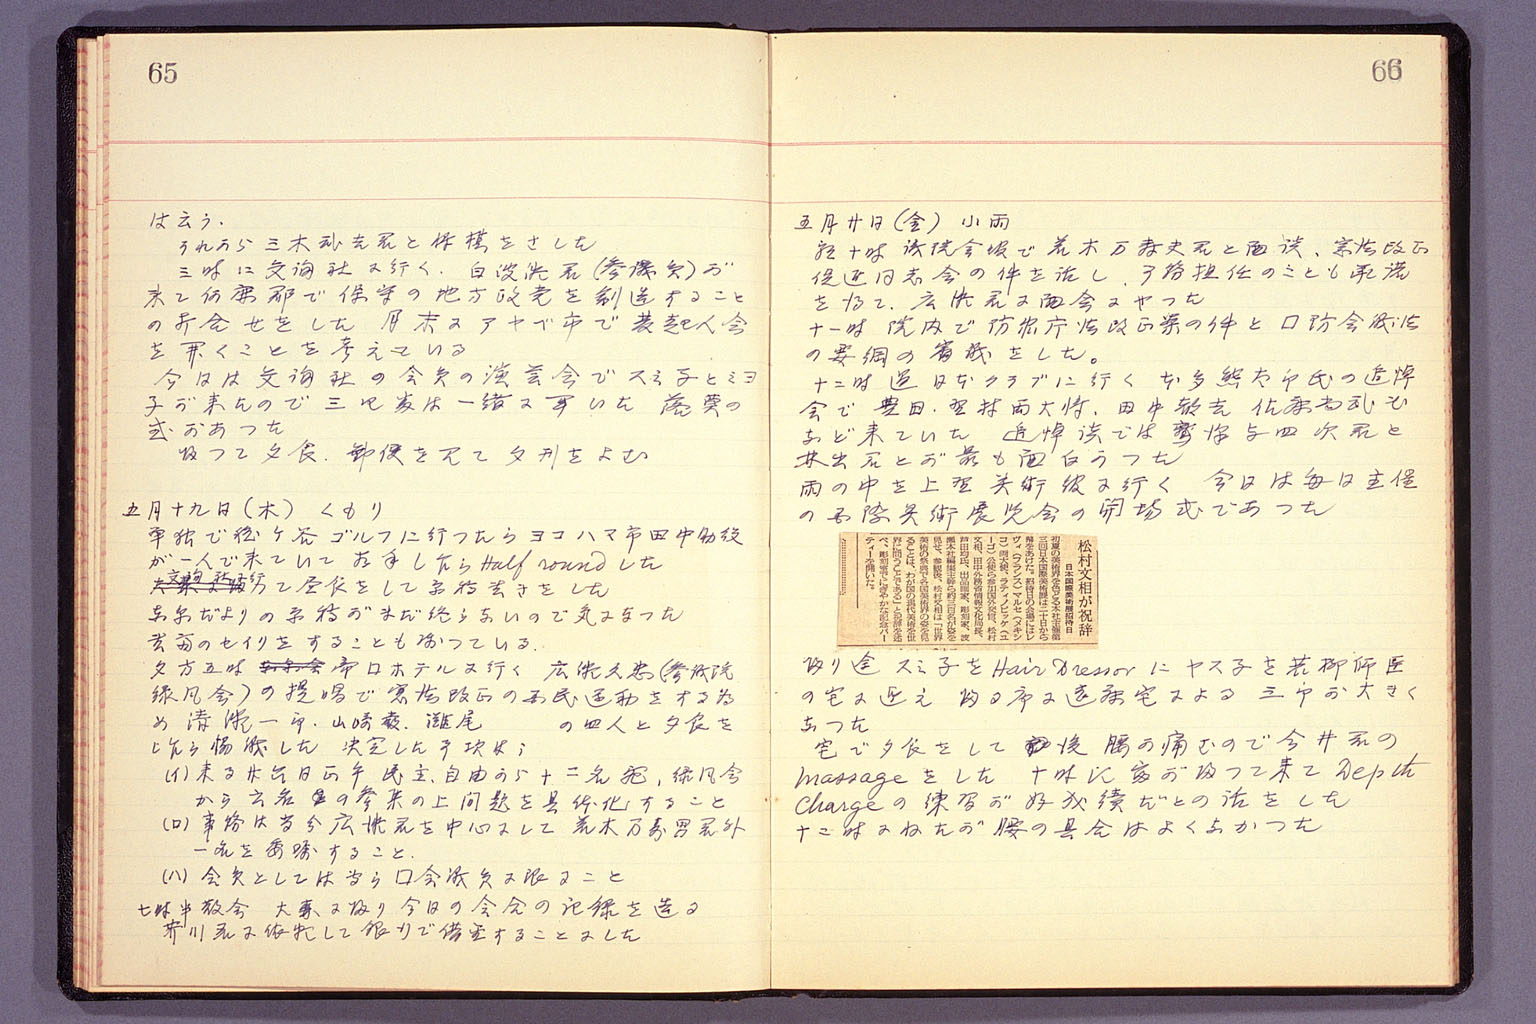 65
は云う.
それから三木武夫君と将棋をさした
三時に交詢社に行く. 白波瀬君(参議員)が
来て何鹿郡で保守の地方政党を創造すること
の打合せをした 月末にアヤベ市で発起人会
を開くことを考えている
今日は交詢社の会員の演芸会でスミ子とミヨ
子が来たので三児等は一緒に 落葉の
式があつた
帰つて夕食. 郵便を見て夕刊をよむ
五月十九日(木) くもり
単独で程ヶ谷ゴルフに行つたらヨコハマ市田中助役
が一人で来ていて お手 したら Half round した
交詢社に行つて昼食をして 書きをした
だよりの原稿がまだ終らないので気になつた
芦前のセイリをすることも残つている
夕方五時 帝国ホテルに行く 広瀬久忠(参議院
緑風会)の提唱で憲法改正の国民運動をする為
め 清瀬一郎. 山崎巌. 灘尾 の四人と夕食を
し乍ら協議した 決定した事項は;
(イ) 来る廿 日正午 民主、自由から十二名宛, 緑風会
から六名 の参集の上問題を具体化すること
(ロ) 事務は当分広瀬君を中心にして 荒木万寿男君外
一名を委嘱すること.
(ハ) 会員としては専ら国会議員に限ること
七時半散会 大 に帰り今日の会合の記録を造る
芥川君に依托して銀行で借金することにした
66
五月廿日(金) 小雨
朝十時議院会場で荒木万寿夫君と面談、憲法改正
促進同志会の件を話し、事務担任のことも承諾
を得て、広瀬君に面会にやつた
十一時 院内で防衛庁法改正案の件と国防会議法
の要綱の審議をした。
十二時過日本クラブに行く 本多熊太郎氏の追悼
会で 豊田. 野村両大将、田中都吉 佐藤尚武氏
など来ていた 追悼談では 与四次君と
林出君とが最も面白かつた
雨の中を上野美術館に行く 今日は毎日主催
の国際美術展覧会の開場式であつた
松村文相が祝辞
日本国際美術展招待日
初夏の美術界を色どる本社主催第
三回日本国際美術展は二十日から
幕をあけた。招待日の会場にはレ
ヴィ(フランス)マルセ(メキシ
コ)両大使、ラティノビッケ(ユ
ーゴ)公使ら参加国外交官、松村
文相、田中外務省情報文化局長、
芦田均氏、出品画家、彫刻家、渡
瀬本社編集主幹ら約三百名が姿を
見せ、参観後、松村文相は「世界
美術の祭典で各国美術界の姿を見
ることは、わが国の現代美術を世
界に問うことでもある」と祝辞を述
べ、彫刻室でにぎやかな記念パー
ティーを開いた。
帰り途 スミ子を Hair Dressor に ヤス子を若柳師匠
の宅に迎え 帰る序に遠藤宅による 三郎が大きく
なつた
宅で夕食をして 後 腰が痛むので今井君の
massage をした 十時に 家が帰つて来て Depth
Charge の練習が好成績だとの話をした
十二時にねたが 腰の具合はよくなかつた